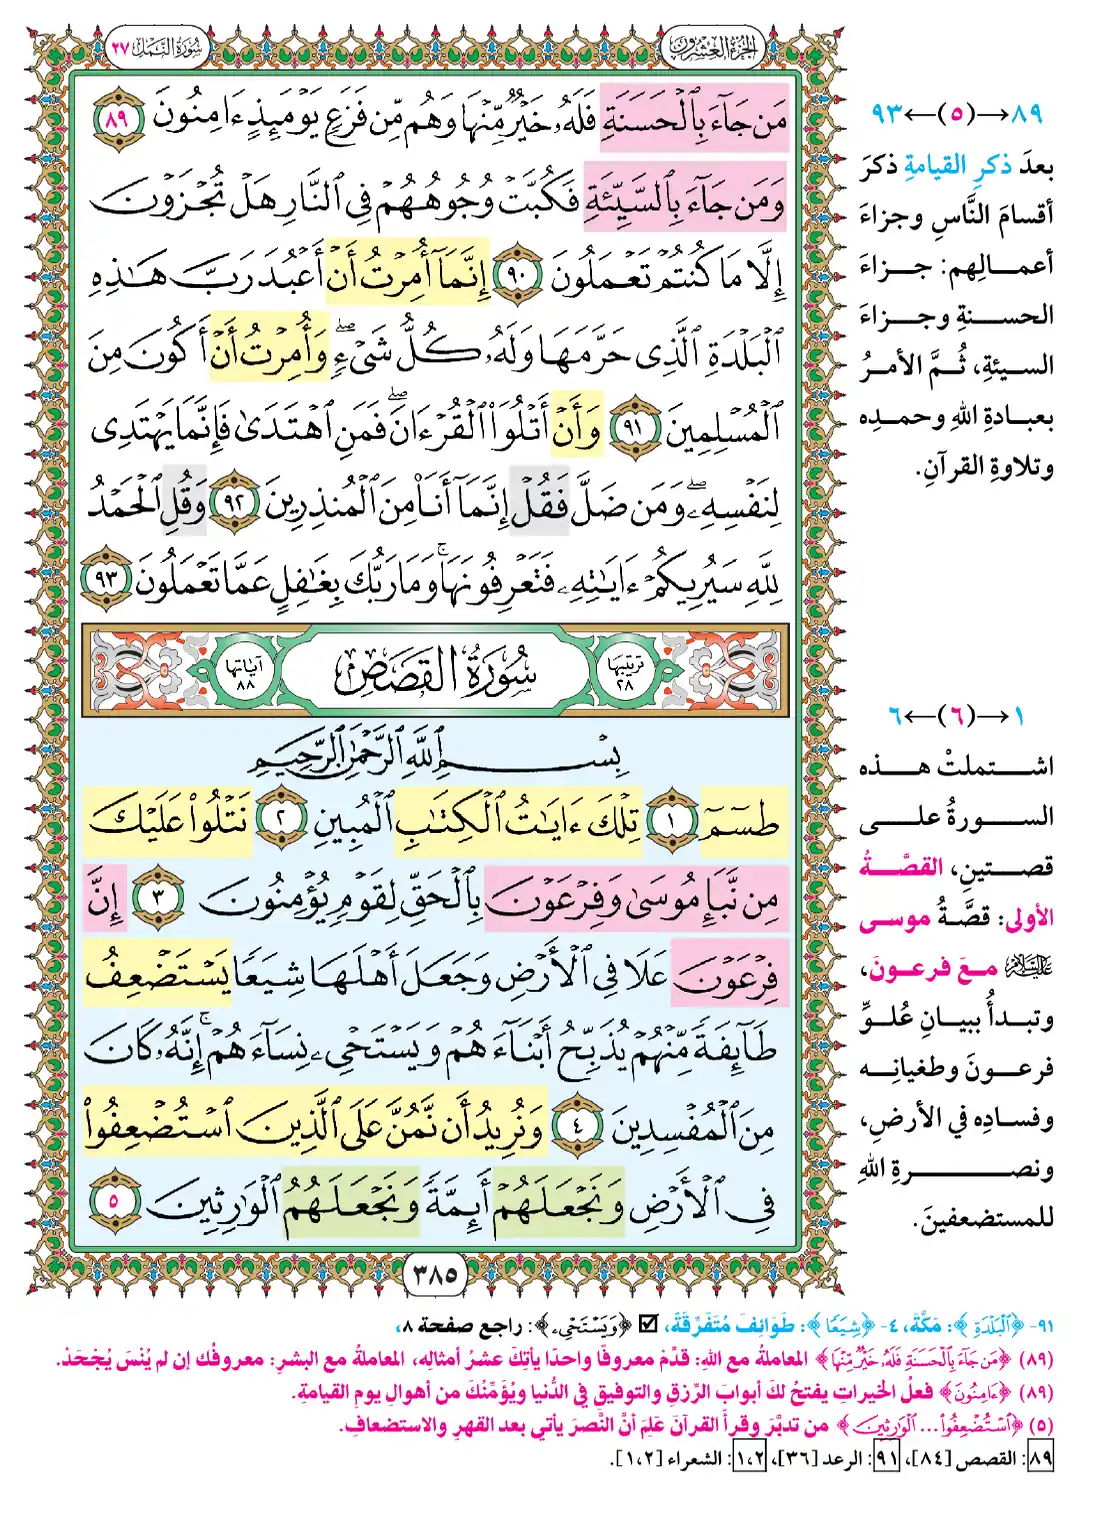 الجزء العشرون
سورة النمل ٢٧
مَن جَآءَ بِٱلْحَسَنَةِ فَلَهُۥ خَيْرٌ مِّنْهَا وَهُم مِّن فَزَعٍ يَوْمَئِذٍ ءَامِنُونَ ٨٩
وَمَن جَآءَ بِٱلسَّيِّئَةِ فَكُبَّتْ وُجُوهُهُمْ فِى ٱلنَّارِ هَلْ تُجْزَوْنَ
إِلَّا مَا كُنتُمْ تَعْمَلُونَ ٩٠ إِنَّمَآ أُمِرْتُ أَنْ أَعْبُدَ رَبَّ هَٰذِهِ
ٱلْبَلْدَةِ ٱلَّذِى حَرَّمَهَا وَلَهُۥ كُلُّ شَىْءٍۖ وَأُمِرْتُ أَنْ أَكُونَ مِنَ
ٱلْمُسْلِمِينَ ٩١ وَأَنْ أَتْلُوَا۟ ٱلْقُرْءَانَۖ فَمَنِ ٱهْتَدَىٰ فَإِنَّمَا يَهْتَدِى
لِنَفْسِهِۦۖ وَمَن ضَلَّ فَقُلْ إِنَّمَآ أَنَا۠ مِنَ ٱلْمُنذِرِينَ ٩٢ وَقُلِ ٱلْحَمْدُ
لِلَّهِ سَيُرِيكُمْ ءَايَٰتِهِۦ فَتَعْرِفُونَهَاۚ وَمَا رَبُّكَ بِغَٰفِلٍ عَمَّا تَعْمَلُونَ ٩٣
ترتيبها ٢٨ سُورَةُ القَصَصِ آياتها ٨٨
بِسْمِ ٱللَّهِ ٱلرَّحْمَٰنِ ٱلرَّحِيمِ
طسٓمٓ ١ تِلْكَ ءَايَٰتُ ٱلْكِتَٰبِ ٱلْمُبِينِ ٢ نَتْلُوا۟ عَلَيْكَ
مِن نَّبَإِ مُوسَىٰ وَفِرْعَوْنَ بِٱلْحَقِّ لِقَوْمٍ يُؤْمِنُونَ ٣ إِنَّ
فِرْعَوْنَ عَلَا فِى ٱلْأَرْضِ وَجَعَلَ أَهْلَهَا شِيَعًا يَسْتَضْعِفُ
طَآئِفَةً مِّنْهُمْ يُذَبِّحُ أَبْنَآءَهُمْ وَيَسْتَحْىِۦ نِسَآءَهُمْۚ إِنَّهُۥ كَانَ
مِنَ ٱلْمُفْسِدِينَ ٤ وَنُرِيدُ أَن نَّمُنَّ عَلَى ٱلَّذِينَ ٱسْتُضْعِفُوا۟
فِى ٱلْأَرْضِ وَنَجْعَلَهُمْ أَئِمَّةً وَنَجْعَلَهُمُ ٱلْوَٰرِثِينَ ٥
٣٨٥
٨٩→(٥)←٩٣
بعدَ ذكرِ القيامةِ ذكرَ
أقسامَ النَّاسِ وجزاءَ
أعمالِهم: جزاءَ
الحسنةِ وجزاءَ
السيئةِ، ثُمَّ الأمرُ
بعبادةِ اللهِ وحمدِه
وتلاوةِ القرآنِ.
١→(٦)←٦
اشتملتْ هذه
السورةُ على
قصتينِ، القصَّةُ
الأولى: قصَّةُ موسى
عليه السلام معَ فرعونَ،
وتبدأُ ببيانِ عُلوِّ
فرعونَ وطغيانِه
وفسادِه في الأرضِ،
ونصرةِ اللهِ
للمستضعفينَ.
٩١- ﴿ٱلْبَلْدَةِ﴾: مَكَّةَ، ٤- ﴿شِيَعًا﴾: طَوَائِفَ مُتَفَرِّقَةً، ☑ ﴿وَيَسْتَحْىِۦ﴾: راجع صفحة ٨،
(٨٩) ﴿مَن جَآءَ بِٱلْحَسَنَةِ فَلَهُۥ خَيْرٌ مِّنْهَا﴾ المعاملةُ مع اللهِ: قدِّمْ معروفًا واحدًا يأتِكَ عشرُ أمثالِه، المعاملةُ مع البشرِ: معروفُك إن لم يُنْسَ يُجْحَدْ.
(٨٩) ﴿ءَامِنُونَ﴾ فعلُ الخيراتِ يفتحُ لكَ أبوابَ الرِّزقِ والتوفيقِ في الدُّنيا ويُؤَمِّنُكَ من أهوالِ يومِ القيامةِ.
(٥) ﴿ٱسْتُضْعِفُوا۟ ... ٱلْوَٰرِثِينَ﴾ من تدبَّرَ وقرأَ القرآنَ عَلِمَ أنَّ النَّصرَ يأتي بعد القهرِ والاستضعافِ.
٨٩: القصص [٨٤]، ٩١: الرعد [٣٦]، ١،٢: الشعراء [١،٢].